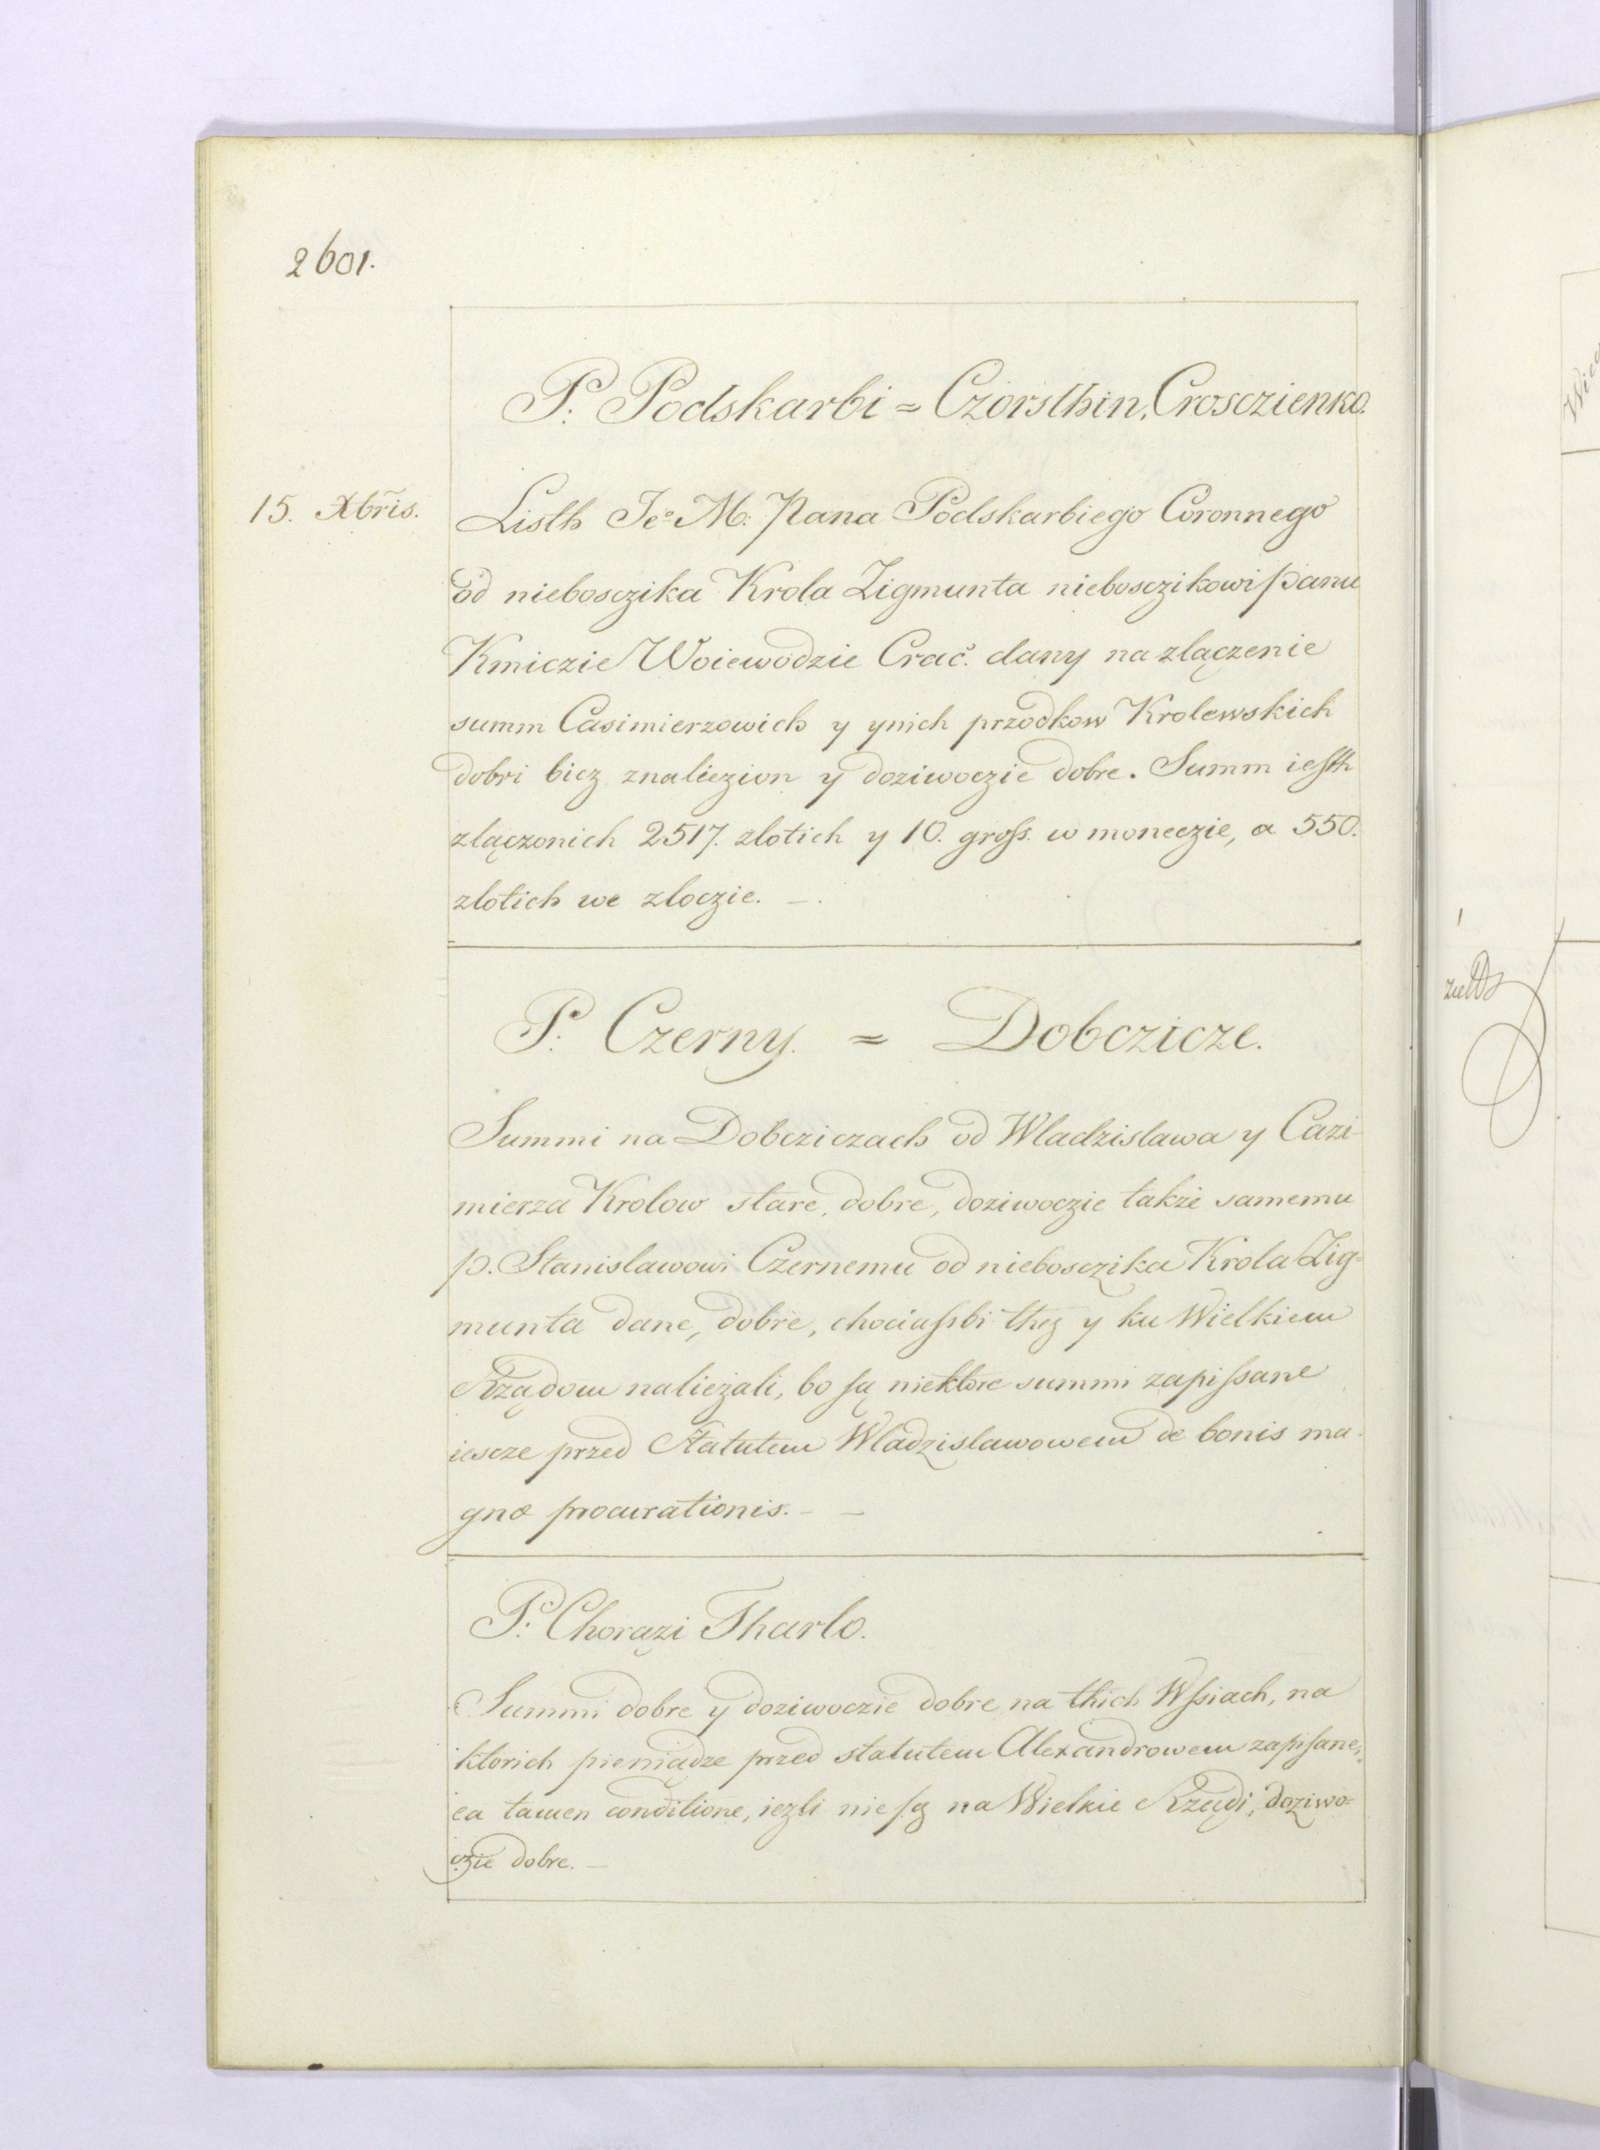 2601.
P. Podskarbi = Czorsthin, Crosczienko.
15. Xbris.
Listh Jeo M: Pana Podskarbiego Coronnego
od nieboszczika Krola Zigmunta niebosczikowi panu
Kmiczie Woiewodzie Crac. dany na zlączenie
summ Casimierzowich y ynich przodkow Krolewskich
dobri bicz znaliezion y doziwoczie dobre. Summ iesth
zlączonich 2517. zlotich y 10. gross. w moneczie, a 550.
zlotich we zloczie. —.
P. Czerny. = Dobczicze.
Summi na Dobcziczach od Wladzislawa y Cazi-
mierza Krolow stare, dobre, doziwoczie także samemu
p. Stanislawowi Czernemu od niebosczika Krola Zig=
munta dane, dobre, chociassbi thez y ku Wielkiem
Rządom nalieżali, bo są niektore summi zapissane
iescze przed Statutem Wladzislawowem de bonis ma-
gnæ procurationis. — —
P. Chorązi Tharlo.
Summi dobre y doziwoczie dobre na thich Wsiach, na
ktorich pieniądze przed statutem Alexandrowem zapisane,
ea tamen conditione, iezli nie są na Wielkie Rządi, doziwo=
czie dobre. —